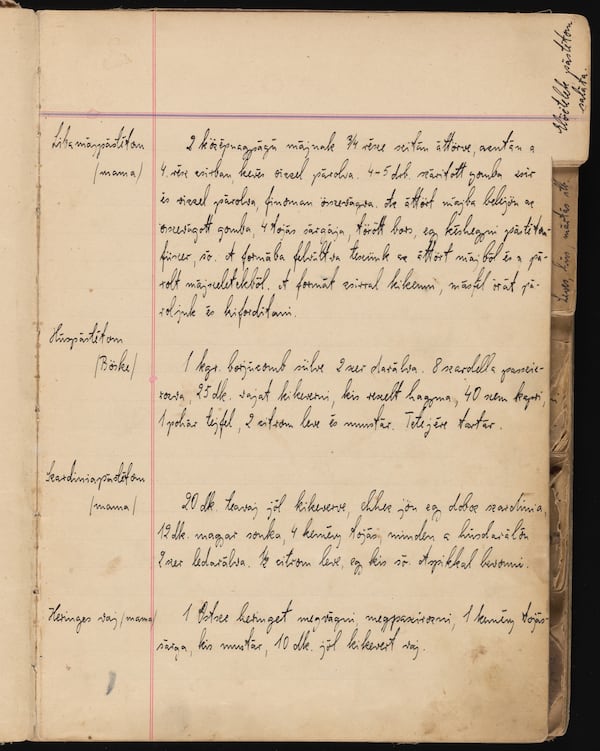 Előételek, pástétom
saláta.
Leves, hús, mártás stb.
Libamájpástétom
/mama/
2 középnagyságú májnak 3/4 része szitán áttörve, azután a
4. rész zsirban, kevés vizzel párolva. 4-5 drb. száritott gomba zsir
és vizzel párolva, finoman összevágva. Az áttört májba belejön az
összevágott gomba, 4 tojás sárgája, törött bors, egy késhegynyi pástétom-
füszer, só. A formába felváltva teszünk az áttört májból és a pá-
rolt májszeletekből. A formát zsirral kikenni, másfél órát pá-
roljuk és kiforditani.
Húspástétom
/Böske/
1 kgr. borjúcomb sülve 2 szer darálva. 8 szardella passzi-
rozva, 25 dk. vajat kikeverni, kis reszelt hagyma, 40 szem kapri,
1 pohár tejfel, 2 citrom leve és mustár. Tetejére tartár.
Szardiniapástétom
/mama/
20 dk. teavaj jól kikeverve, ehhez jön egy doboz szardinia,
12 dk. magyar sonka, 4 kemény tojás, minden a húsdarálón
2 szer ledarálva. 1/2 citrom leve, egy kis só. Aszpikkal bevonni.
Heringes vaj /mama/
1 Ostsee heringet megvágni, megpaszirozni, 1 kemény tojás-
sárga, kis mustár, 10 dk. jól kikevert vaj.